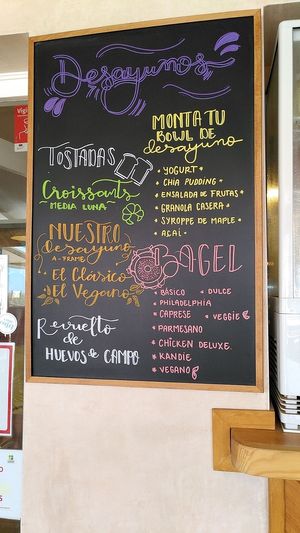 Desayunos
TOSTADAS
Croissants
MEDIA LUNA
NUESTRO
desayuno
A-FRAME
El Clásico
El Vegano
Revuelto
de
HUEVOS de CAMPO
MONTA TU
BOWL DE
desayuno
• YOGURT •
• CHIA PUDDING •
• ENSALADA DE FRUTAS •
• GRANOLA CASERA •
• SYROPPE DE MAPLE •
• AÇAI •
BAGEL
• BÁSICO • DULCE
• PHILADELPHIA
• CAPRESE • VEGGIE
• PARMESANO
• CHICKEN DELUXE.
• KANDIE
• VEGANO